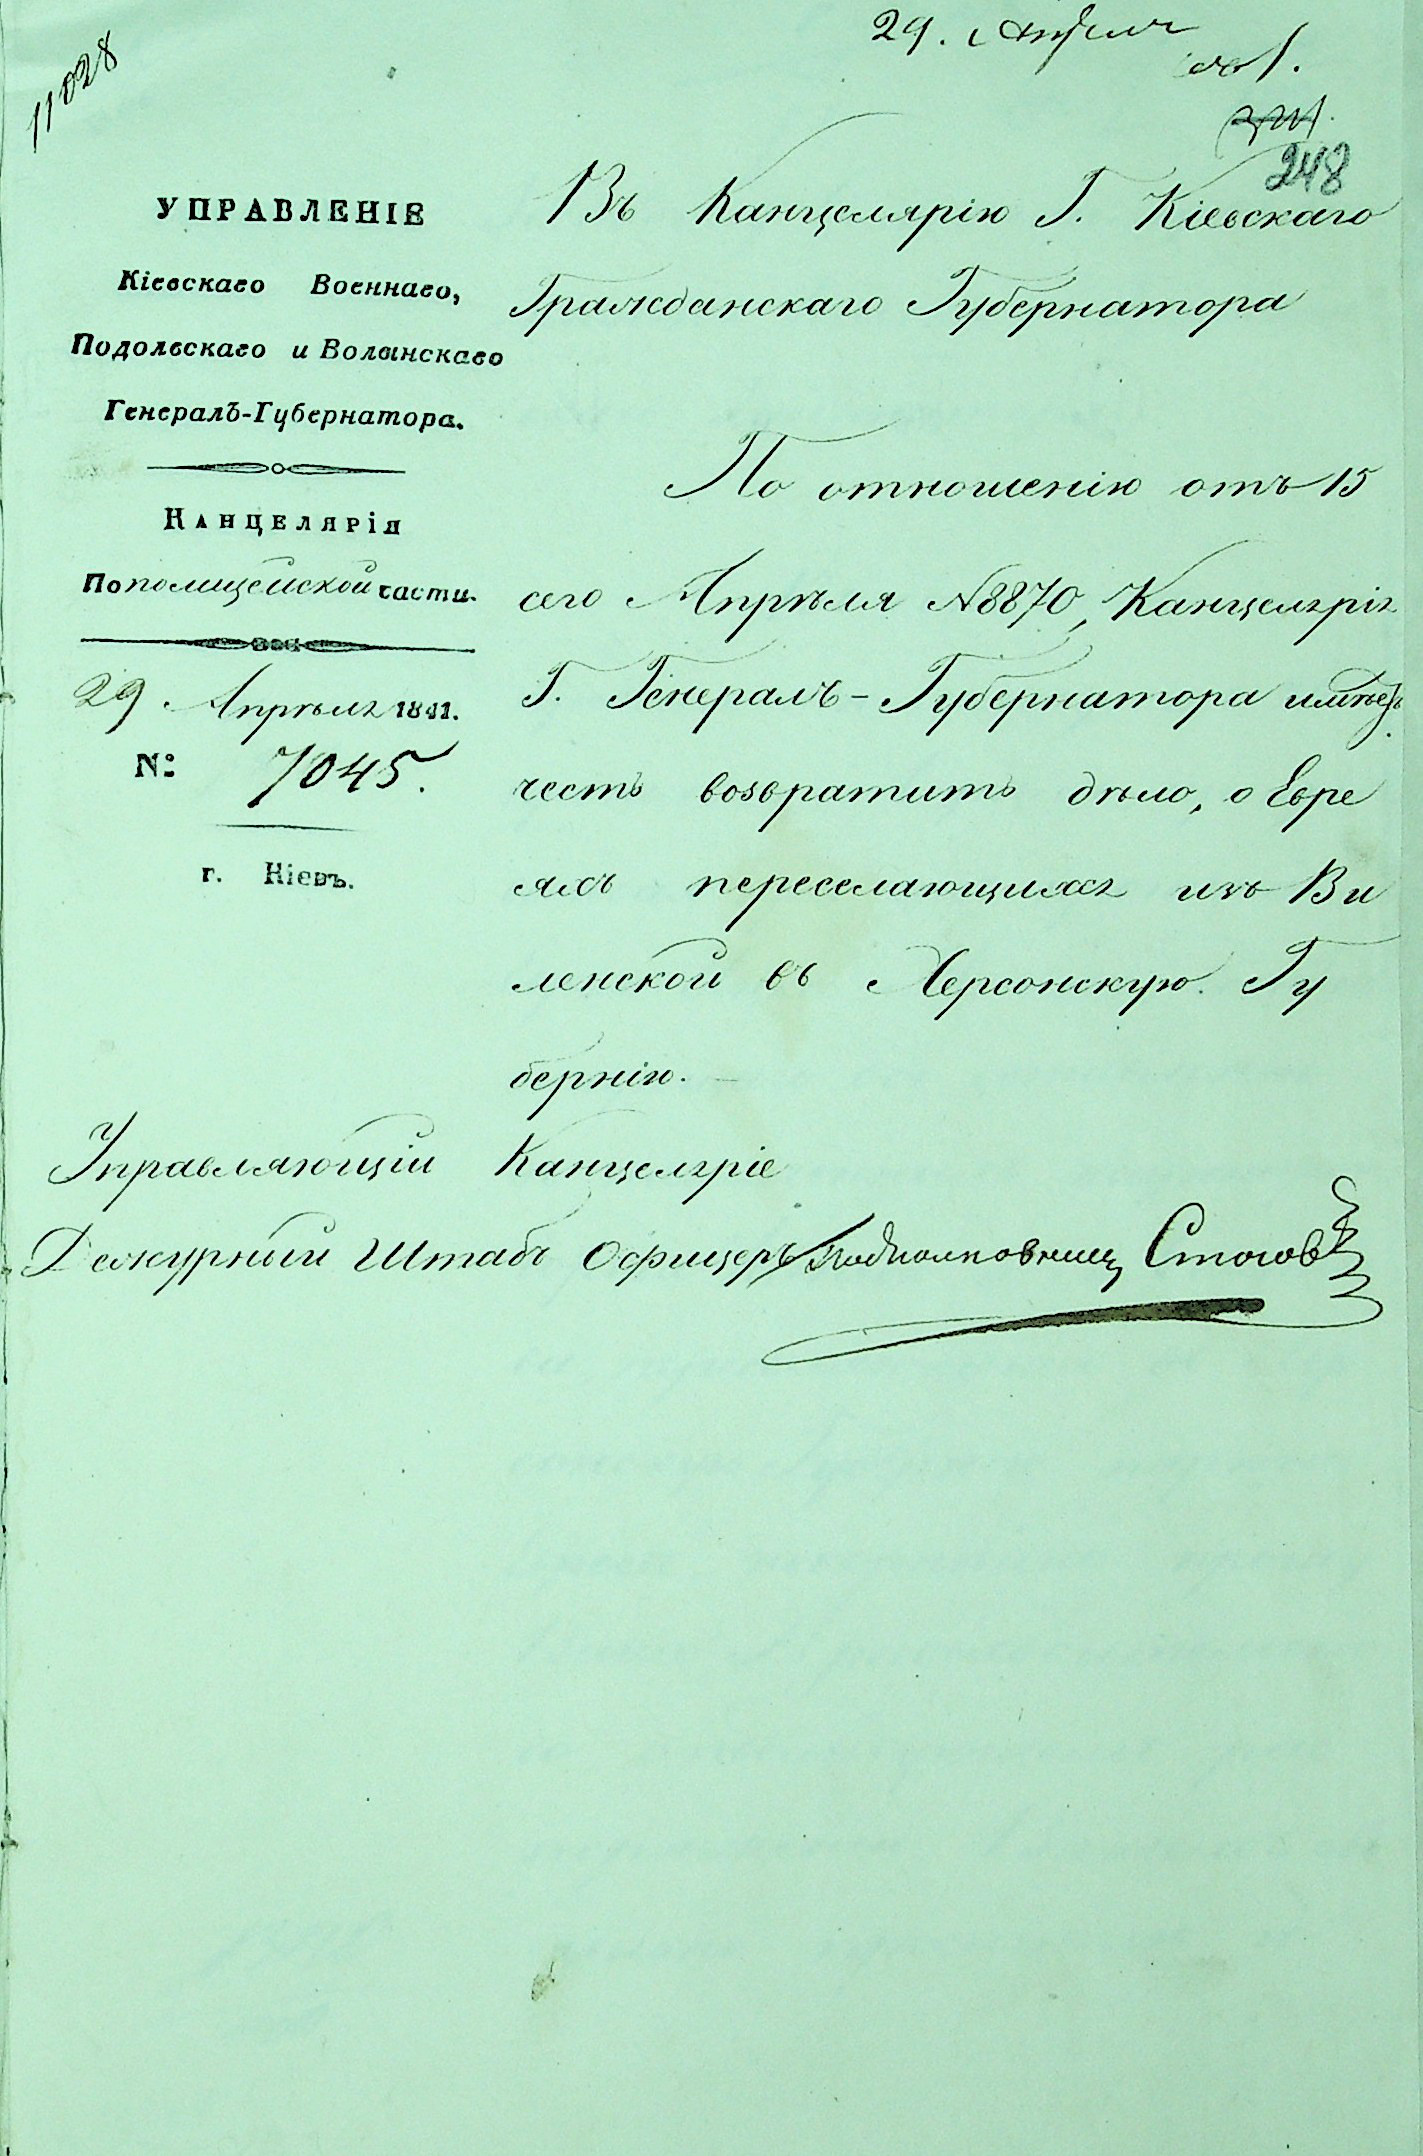 11028
29. Апреля
248
УПРАВЛЕНІЕ
Кіевскаго Военнаго,
Подольскаго и Волынскаго
Генералъ-Губернатора.
Канцелярія
По полицейской части.
29 Апрѣля 1841.
№: 7045.
г. Кіевъ.
Въ Канцелярію Г. Кіевскаго
Гражданскаго Губернатора
По отношенію отъ 15
сего Апрѣля №8870, Канцелярія
Г. Генералъ-Губернатора имѣетъ
честь возвратить дѣло, о Евре
яхъ переселающихся изъ Ви
ленской въ Херсонскую Гу
бернію.
Управляющій Канцеляріею
Дежурный Штабъ Офицеръ Подполковникъ Стоговъ